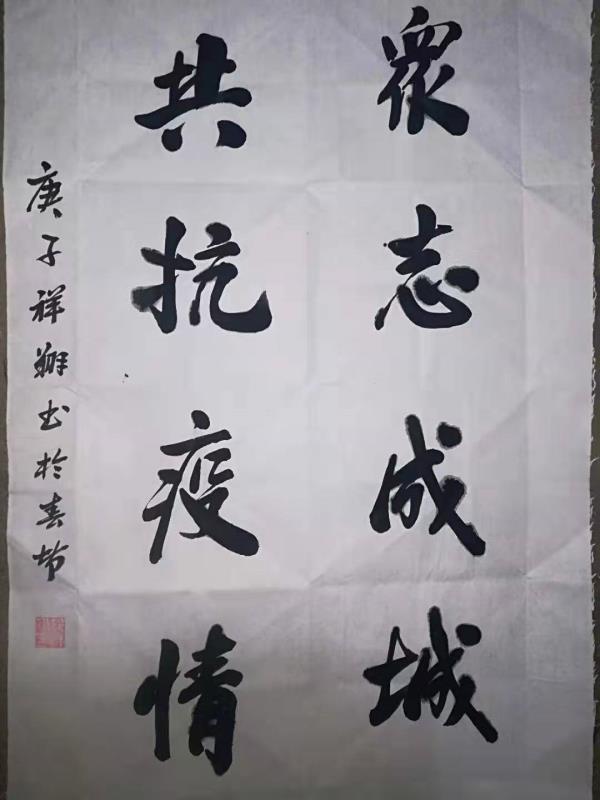 眾志成城
共抗疫情
庚子祥翔书於春节